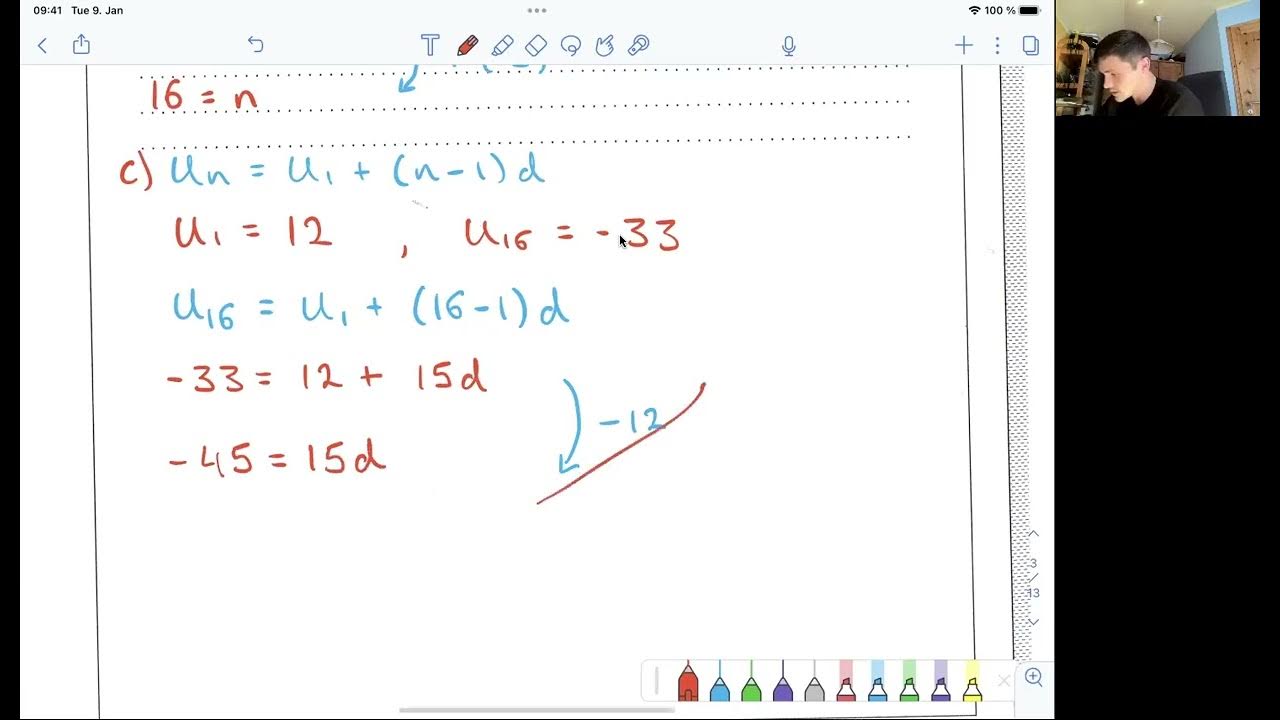 09:41 Tue 9. Jan
100 %
T
16 = n
c) Un = U1 + (n-1)d
U1 = 12 , U16 = -33
U16 = U1 + (16-1)d
-33 = 12 + 15d
-12
-45 = 15d
3
/
13